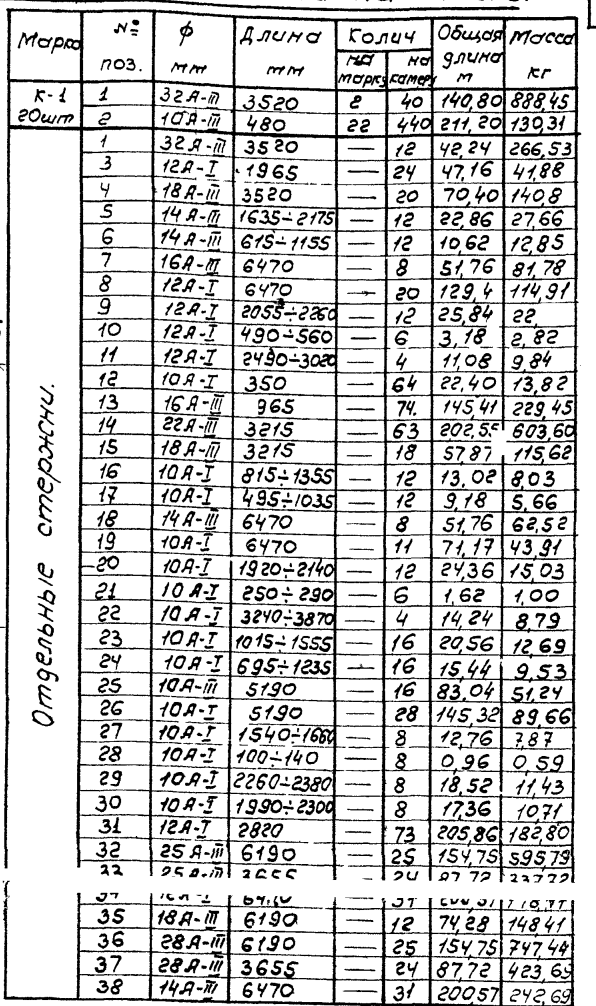 Марка № поз. ф мм Длина мм Колич на марку на камеру Общая длина м Масса кг
К-1 1 32А-III 3520 2 40 140,80 888,45
20шт 2 10А-III 480 22 440 211,20 130,31
Отдельные стержни.
1 32А-III 3520 — 12 42,24 266,53
3 12А-I 1965 — 24 47,16 41,88
4 18А-III 3520 — 20 70,40 140,8
5 14А-III 1635÷2175 — 12 22,86 27,66
6 14А-III 615÷1155 — 12 10,62 12,85
7 16А-III 6470 — 8 51,76 81,78
8 12А-I 6470 — 20 129,4 114,91
9 12А-I 2055÷2260 — 12 25,84 22,
10 12А-I 490÷560 — 6 3,18 2,82
11 12А-I 2490÷3020 — 4 11,08 9,84
12 10А-I 350 — 64 22,40 13,82
13 16А-III 965 — 74. 145,41 229,45
14 22А-III 3215 — 63 202,55 603,60
15 18А-III 3215 — 18 57,87 115,62
16 10А-I 815÷1355 — 12 13,02 8,03
17 10А-I 495÷1035 — 12 9,18 5,66
18 14А-III 6470 — 8 51,76 62,52
19 10А-I 6470 — 11 71,17 43,91
20 10А-I 1920÷2140 — 12 24,36 15,03
21 10А-I 250÷290 — 6 1,62 1,00
22 10А-I 3240÷3870 — 4 14,24 8,79
23 10А-I 1015÷1555 — 16 20,56 12,69
24 10А-I 695÷1235 — 16 15,44 9,53
25 10А-III 5190 — 16 83,04 51,24
26 10А-I 5190 — 28 145,32 89,66
27 10А-I 1540÷1660 — 8 12,76 7,87
28 10А-I 100÷140 — 8 0,96 0,59
29 10А-I 2260÷2380 — 8 18,52 11,43
30 10А-I 1990÷2300 — 8 17,36 10,71
31 12А-I 2820 — 73 205,86 182,80
32 25А-III 6190 — 25 154,75 595,79
33 25А-III 3655 — 24 87,72 337,72
35 18А-III 6190 — 12 74,28 148,41
36 28А-III 6190 — 25 154,75 747,44
37 28А-III 3655 — 24 87,72 423,69
38 14А-III 6470 — 31 200,57 242,69